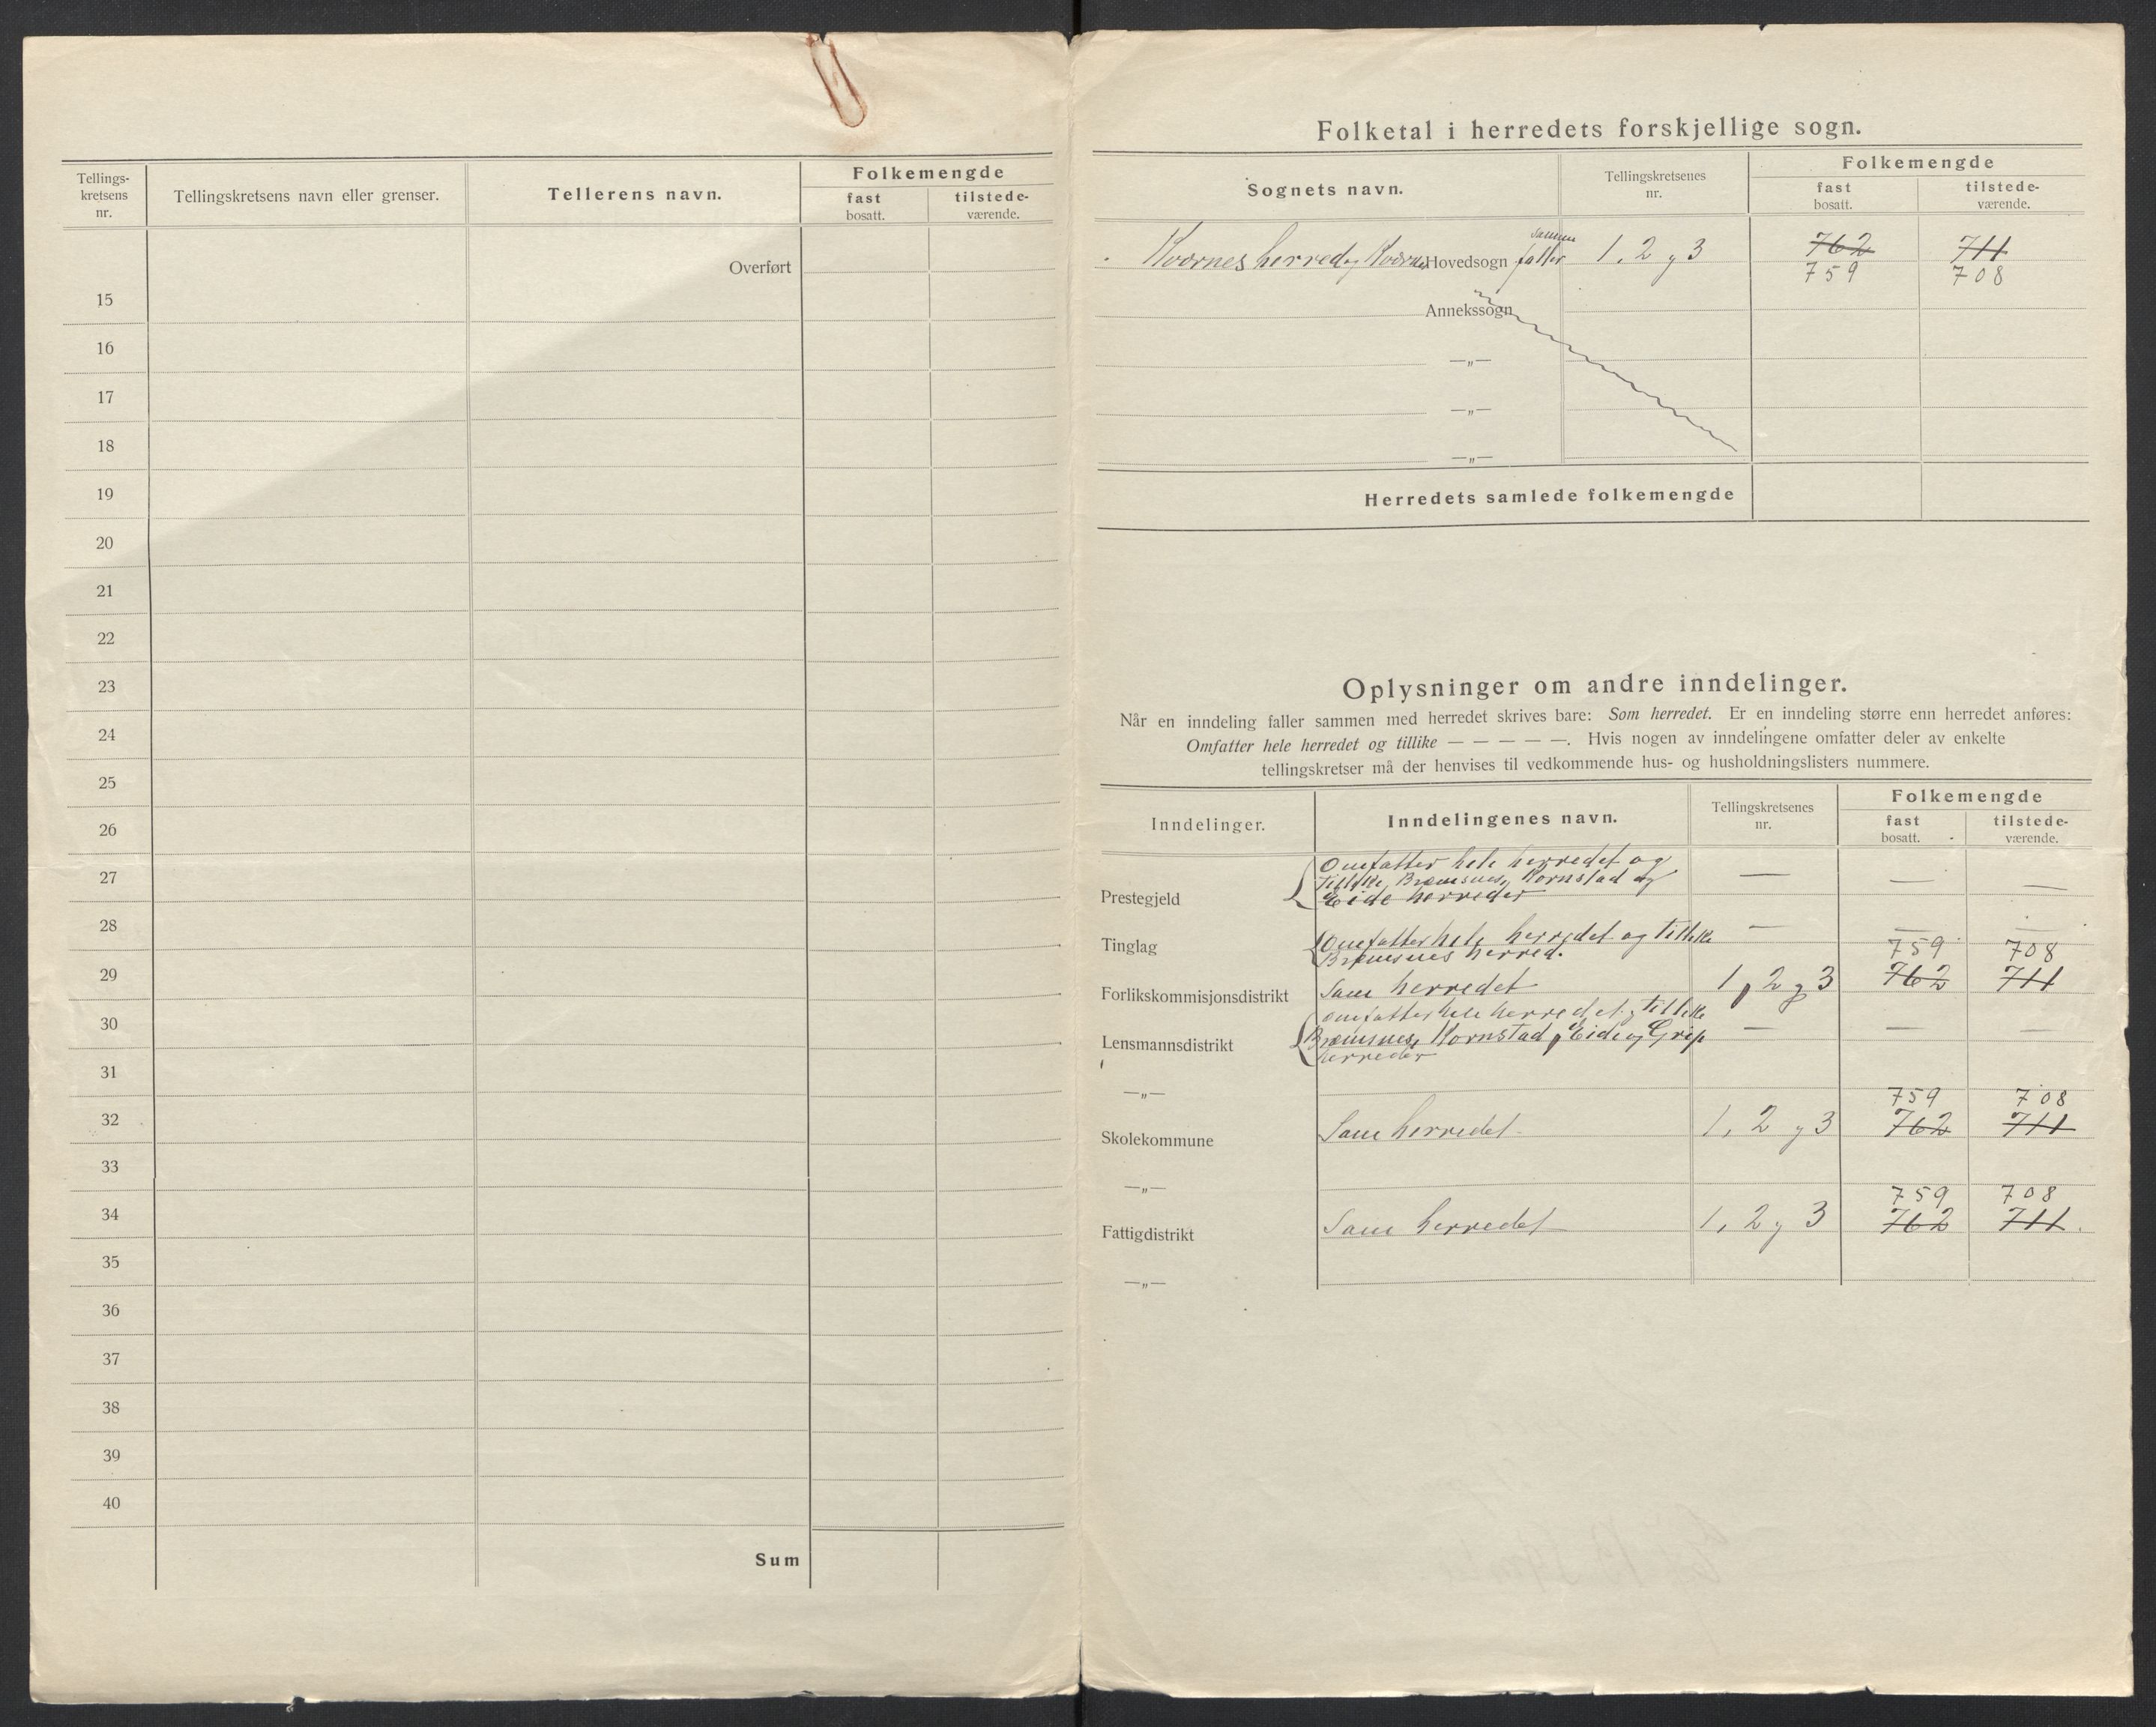 Tellings-
kretsens
nr.
Tellingskretsens navn eller grenser.
Tellerens navn.
Folkemengde
fast
bosatt.
tilstede-
værende.
Overført
15
16
17
18
19
20
21
22
23
24
25
26
27
28
29
30
31
32
33
34
35
36
37
38
39
40
Sum
Folketal i herredets forskjellige sogn.
Sognets navn.
Tellingskretsenes
nr.
Folkemengde
fast
bosatt.
tilstede-
værende.
Kvernes herred og Kvernes Hovedsogn sammen
falder 1, 2 og 3 762 711
759 708
Annekssogn
—„—
—„—
—„—
Herredets samlede folkemengde
Oplysninger om andre inndelinger.
Når en inndeling faller sammen med herredet skrives bare: Som herredet. Er en inndeling større enn herredet anføres:
Omfatter hele herredet og tillike — — — — —. Hvis nogen av inndelingene omfatter deler av enkelte
tellingskretser må der henvises til vedkommende hus- og husholdningslisters nummere.
Inndelinger.
Inndelingenes navn.
Tellingskretsenes
nr.
Folkemengde
fast
bosatt.
tilstede-
værende.
Omfatter hele herredet og
tillike Bremsnes, Kornstad og — — —
Prestegjeld Eide herreder
Omfatter hele herredet og tillike — — —
Tinglag Bremsnes herred. 759 708
Forlikskommisjonsdistrikt Som herredet 1, 2 og 3 762 711
Omfatter hele herredet og tillike
Lensmannsdistrikt Bremsnes, Kornstad, Eide og Grip — — —
herreder
—„— 759 708
Skolekommune Som herredet 1, 2 og 3 762 711
—„— 759 708
Fattigdistrikt Som herredet 1, 2 og 3 762 711.
—„—